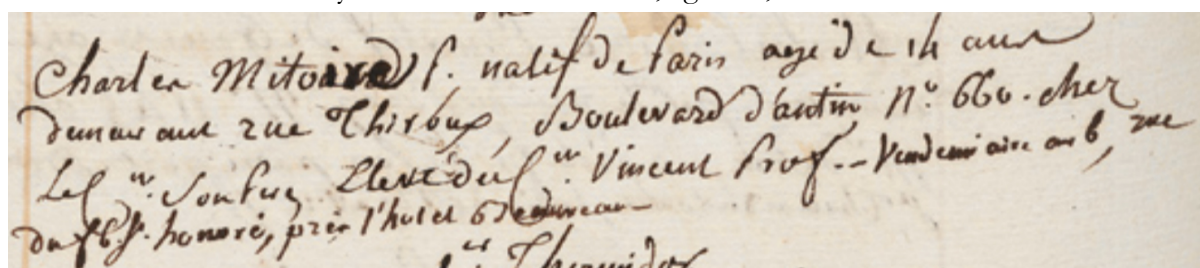 Charles Mitoire P. natif de Paris agé de 14 ans
demeurant rue Thiroux, Boulevard d'antin N.º 660. chez
Le C.en son Pere, Eleve du C.en Vincent Prof.-- Vendemiaire an 6, rue
du fb. St. honoré, près l'hotel
Thermidor